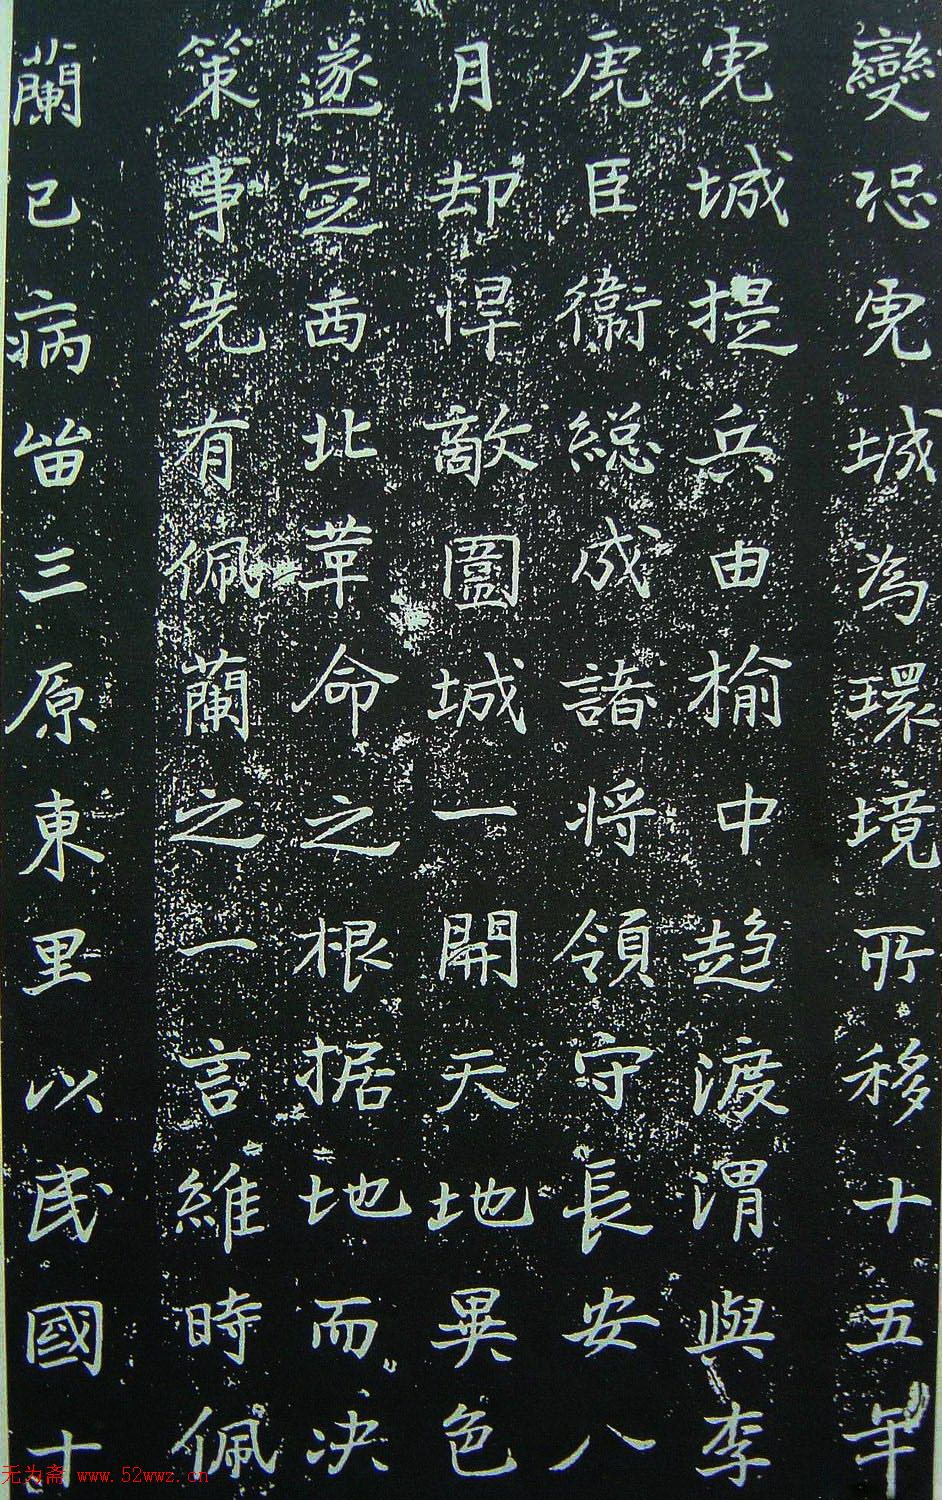 變恐兗城為環境所移十五年
兗城提兵由榆中趋渡渭與李
虎臣衞総成諸将領守長安八
月却悍敵圍城一開天地異色
遂定西北革命之根据地而决
策事先有佩蘭之一言維時佩
蘭已病笛三原東里以民國十
无为斋 www.52wwz.cn